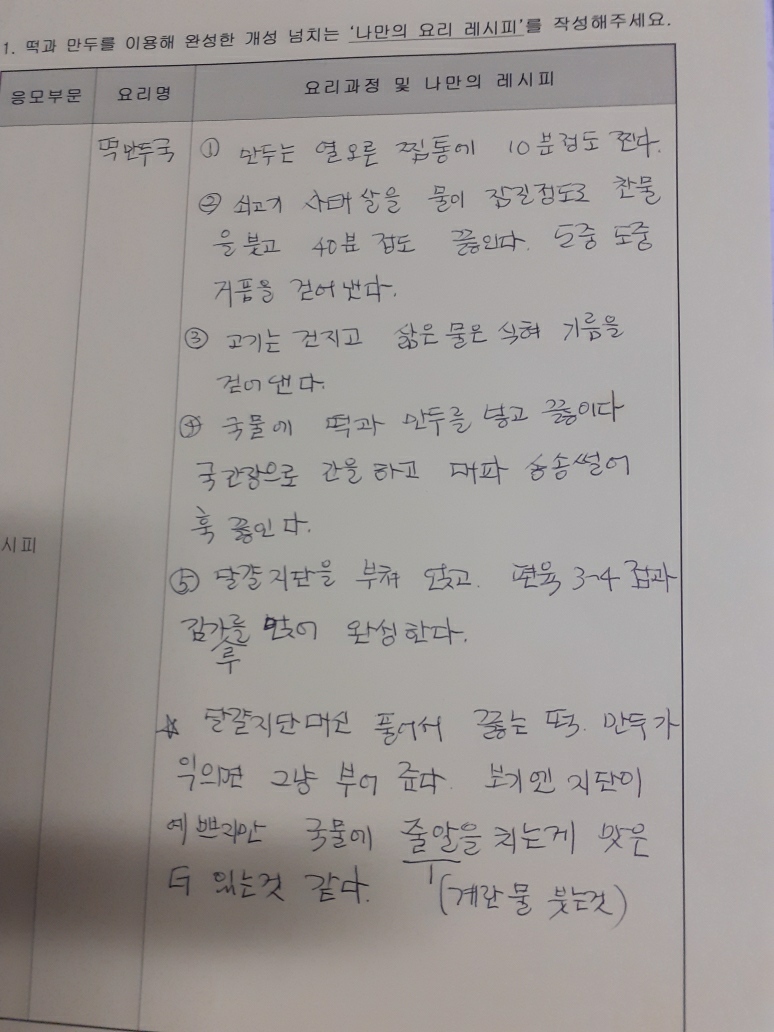 1. 떡과 만두를 이용해 완성한 개성 넘치는 '나만의 요리 레시피'를 작성해주세요.
응모부문 요리명 요리과정 및 나만의 레시피
떡만두국 ① 만두는 열오른 찜통에 10분정도 찐다.
② 쇠고기 사태살을 물이 잠길정도로 찬물
을 붓고 40분 정도 끓인다. 도중 도중
거품을 걷어 낸다.
③ 고기는 건지고 삶은 물은 식혀 기름을
걷어 낸다.
④ 국물에 떡과 만두를 넣고 끓이다
국간장으로 간을 하고 대파 송송썰어
훅 끓인다.
시피
⑤ 달걀지단을 부쳐 얹고. 편육 3~4 점과
김가를 얹어 완성한다.
루
☆ 달걀지단대신 풀어서 끓는 떡. 만두가
익으면 그냥 부어 준다. 보기엔 지단이
예쁘지만 국물에 줄알을 치는게 맛은
더 있는것 같다. (계란물 붓는것)